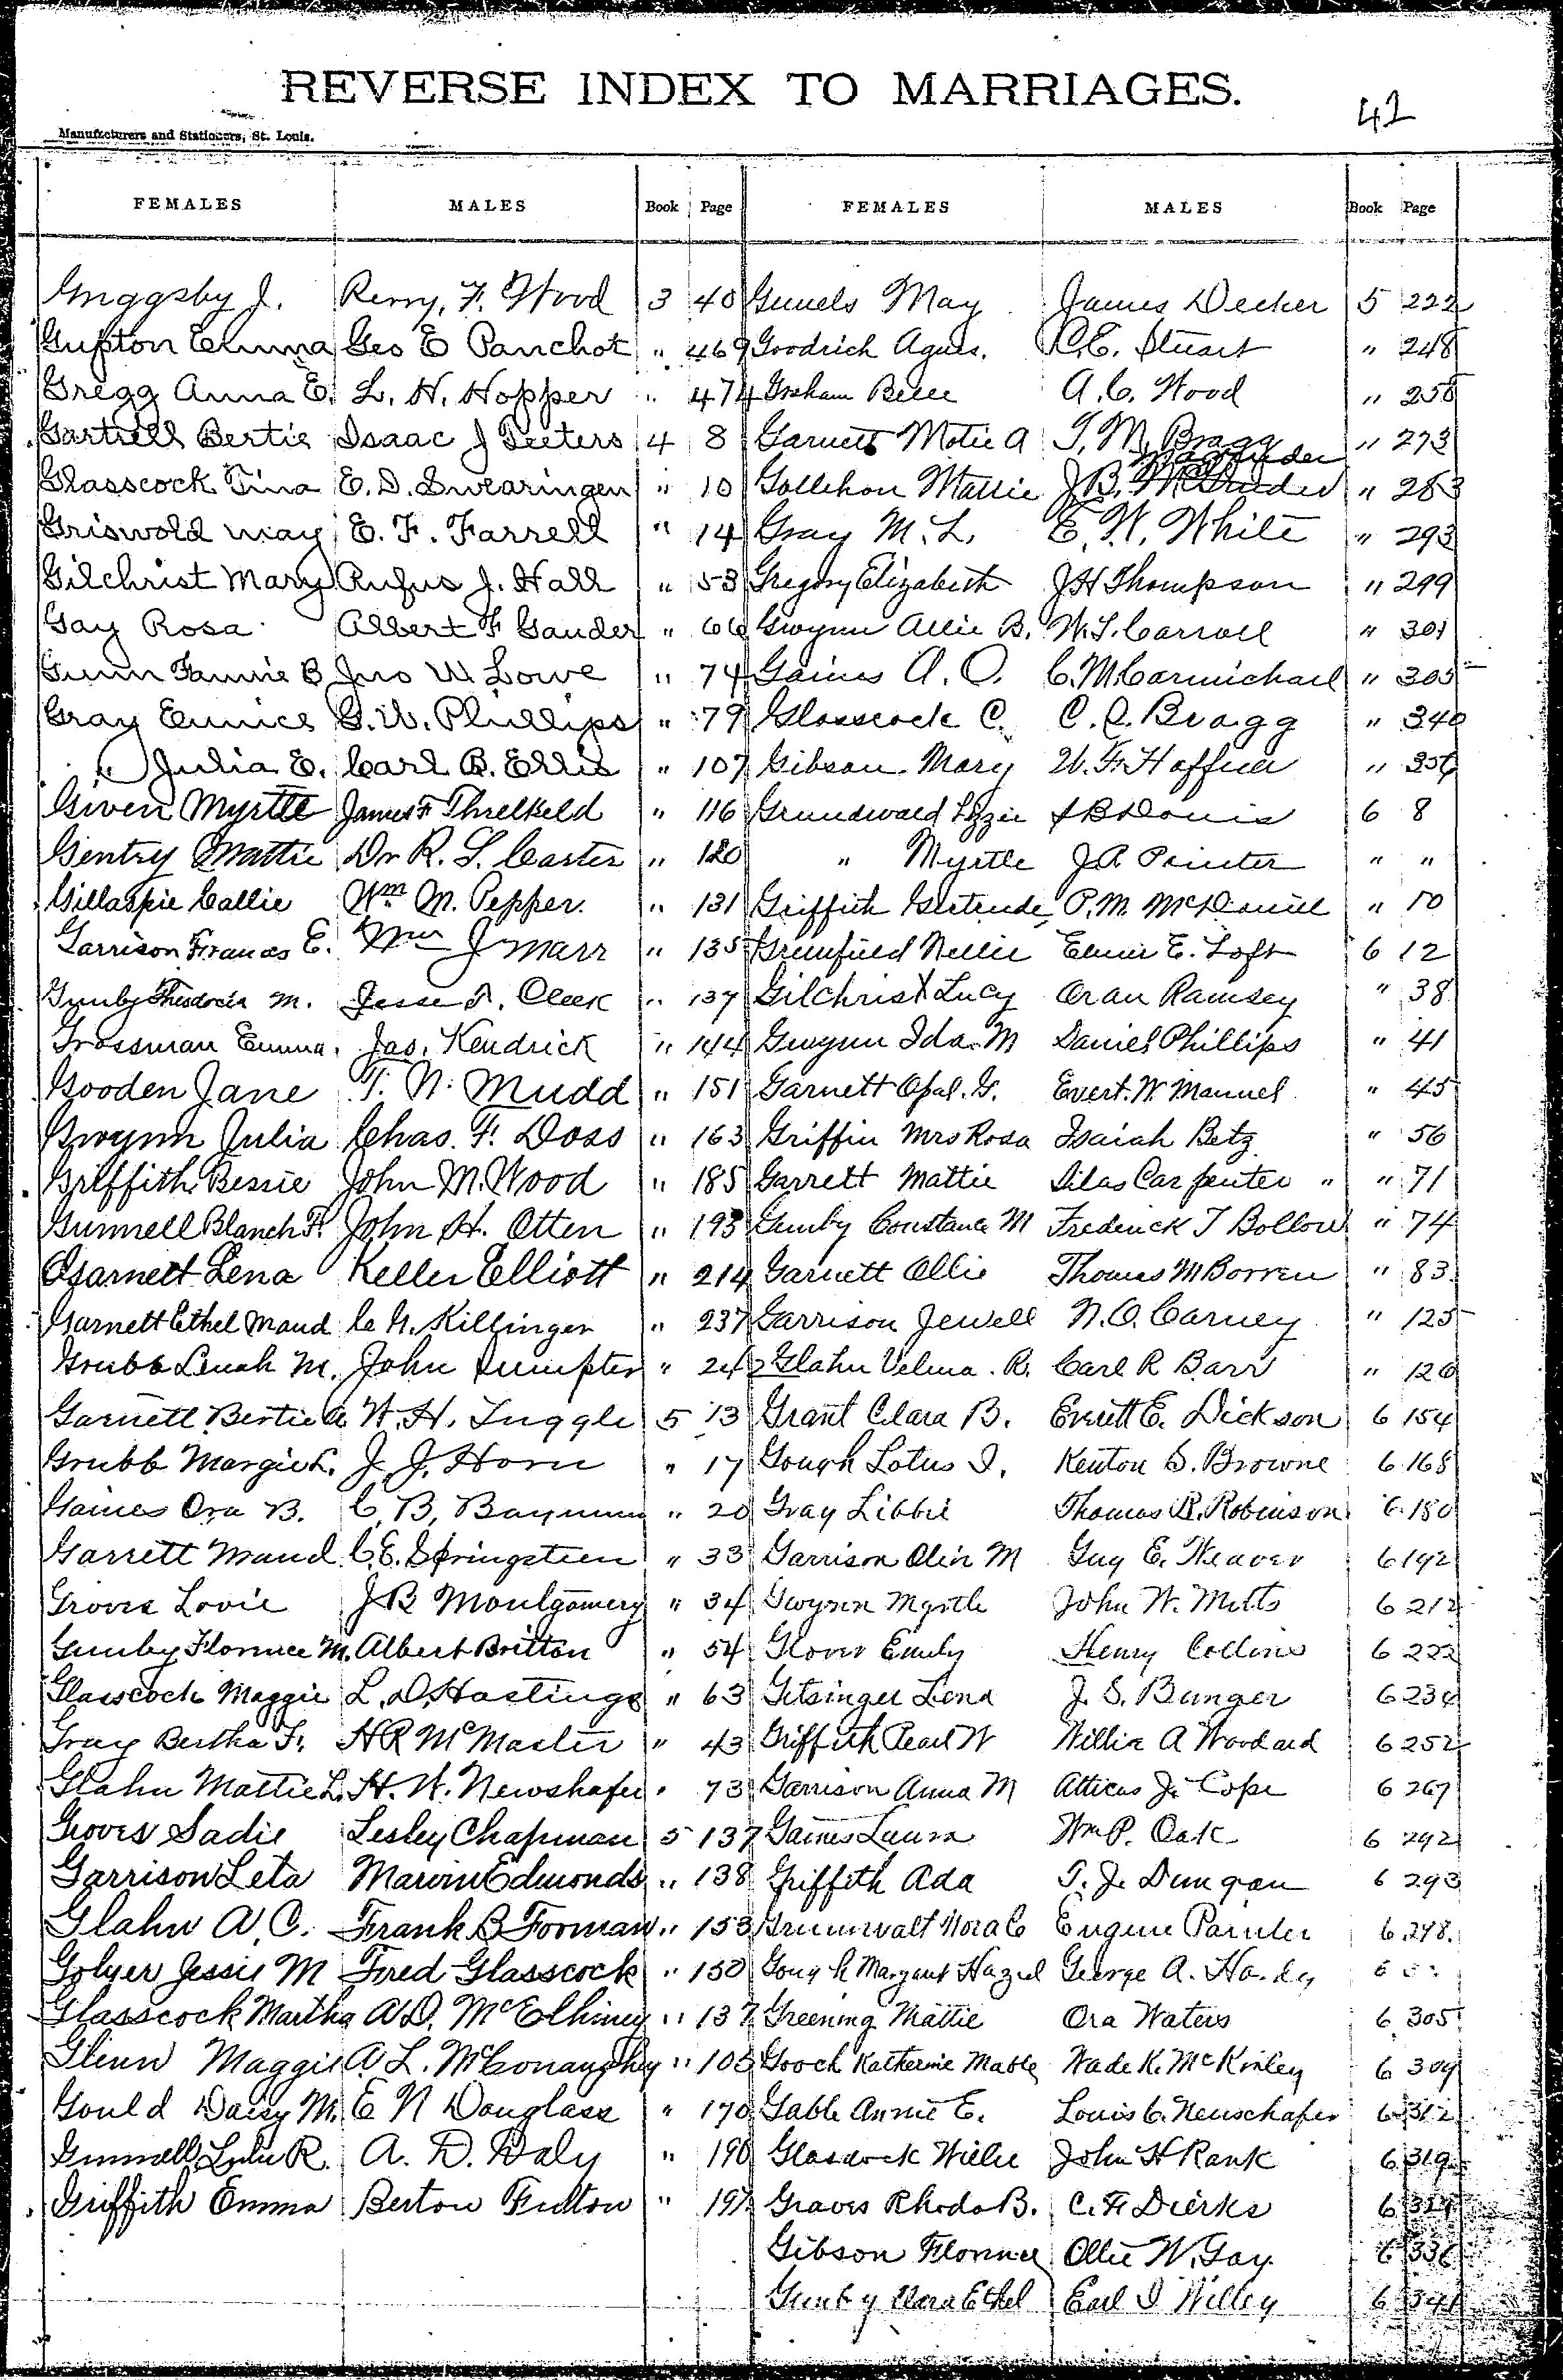 REVERSE INDEX TO MARRIAGES.
42
Manufacturers and Stationers, St. Louis.
FEMALES MALES Book Page FEMALES MALES Book Page
Griggsby J. Perry, F. Wood 3 40
Gupton Emma Geo E Panchot " 469
Gregg Anna E. L. H. Hopper " 474
Gartrell Bertie Isaac J Teeters 4 8
Glasscock Tina E. D. Swearingen " 10
Griswold May E. F. Farrell " 14
Gilchrist Mary Rufus J. Hall " 53
Gay Rosa Albert F Gander " 66
Gunn Fannie B Jno W Lowe " 74
Gray Eunice G. W. Phillips " 79
" Julia E. Carl B. Ellis " 107
Given Myrtle James F Threlkeld " 116
Gentry Mattie Dr R. L. Carter " 120
Gillaspie Callie Wm M. Pepper. " 131
Garrison Frances E. Wm J Marr " 135
Gunby Theodocia M. Jesse T. Cleek " 137
Grossman Emma. Jas. Kendrick " 144
Gooden Jane T. N. Mudd " 151
Gwynn Julia Chas. F. Doss " 163
Griffith Bessie John M. Wood " 185
Gunnell Blanch F. John H. Otten " 193
Garnett Lena Keller Elliott " 214
Garnett Ethel Maud C. G. Killinger " 237
Grubb Leuah M. John Sumpter " 242
Garnett Bertie A W. H. Tuggle 5 13
Grubb Margie L. J. J. Horn " 17
Gaines Ora B. C. B. Baynum " 20
Garrett Maud C. E. Springsteen " 33
Groves Lovie J B Montgomery " 34
Gunby Florence M. Albert Britton " 54
Glasscock Maggie L. D. Hastings " 63
Gray Bertha F. H R McMaster " 43
Glahn Mattie L. H. W. Newshafer " 73
Groves Sadie Lesley Chapman 5 137
Garrison Leta Marvin Edmonds " 138
Glahn A. C. Frank B Forman " 153
Golyer Jessie M Fred Glasscock " 150
Glasscock Martha A D. McElhiney " 137
Glenn Maggie A. L. McConaughy " 108
Gould Daisy M. E N Douglass " 170
Gunnell Lulu R. A. D. Daly " 190
Griffith Emma Berton Fulton " 197
Gunels May James Decker 5 222
Goodrich Agnes. R. E. Stuart " 248
Graham Belle A. C. Wood " 258
Garnett Motie A T. M. Bragg " 273
Gollehon Mattie J B. McGruder Magruder " 283
Gray M. L. E. W. White " 293
Gregory Elizabeth J H Thompson " 299
Gwynn Allie B. W. L. Carroll " 301
Gaines A. O. C. M. Carmichael " 305
Glasscock C. C. C. Bragg " 340
Gibson Mary W. F. Haffner " 356
Grundwald Lizzie 6 8
" Myrtle J A Painter " "
Griffith Gertrude P. M. McDaniel " 10
Greenfield Nellie Elmer E. Loft 6 12
Gilchrist Lucy Oran Ramsey " 38
Gwynn Ida M Daniel Phillips " 41
Garnett Opal. G. Evert. W. Manuel " 45
Griffin Mrs Rosa Isaiah Betz " 56
Garrett Mattie Silas Carpenter " " 71
Gunby Constance M Frederick T Bollow " 74
Garnett Ollie Thomas M Borren " 83
Garrison Jewell N. O. Carney " 125
Glahn Velma. R. Carl R Barr " 126
Grant Clara B. Everett E. Dickson 6 154
Gough Lotus I. Kenton S. Browne 6 168
Gray Libbie Thomas R. Robinson 6 180
Garrison Olin M Guy E. Weaver 6 192
Gwynn Myrtle John W. Mitts 6 212
Glover Emily Henry Collins 6 222
Getsinger Lena J. S. Bunger 6 234
Griffith Pearl W Willie A Woodard 6 252
Garrison Anna M Atticus J. Cope 6 267
Gaines Laura Wm P. Oak 6 292
Griffith Ada T. J. Dungan 6 293
Grunwalt Nora C Eugene Painter 6 298.
Gough Margaret Hazel George A. 6
Greening Mattie Ora Waters 6 305
Gooch Katherine Mable Wade K. McKinley 6 309
Gable Annie E. Louis C. Neuschafer 6 312
Glascock Willie John H Rank 6 319
Graves Rhoda B. C. F. Dierks 6
Gibson Florence Ollie W. Gay 6 336
Gunby Clara Ethel Earl I Willey 6 341